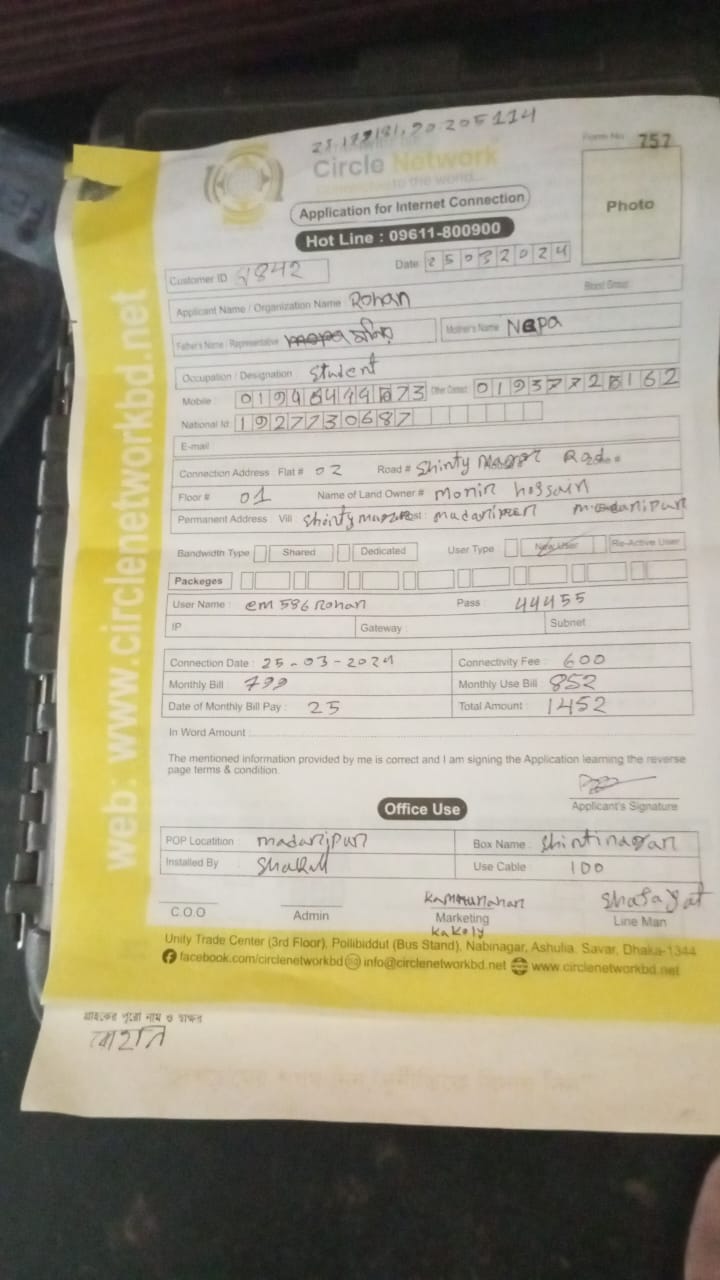 Form No 757
Circle Network
Application for Internet Connection
Photo
Hot Line : 09611-800900
Customer ID
Date 25032024
Blood Group
Applicant Name / Organization Name Rohan
Father's Name / Representative
Mother's Name Nepa
Occupation / Designation Student
Mobile : Other Contact
National Id 1927730687
E-mail
Connection Address Flat # 02 Road # Shinty
Floor # 01 Name of Land Owner # Monir hossain
Permanent Address Vill Madaripur
Bandwidth Type Shared Dedicated User Type New User Re-Active User
Packeges
User Name : em586Rohan Pass : 44455
IP Gateway Subnet
Connection Date : 25-03-2024 Connectivity Fee : 600
Monthly Bill : 799 Monthly Use Bill 852
Date of Monthly Bill Pay : 25 Total Amount : 1452
In Word Amount
The mentioned information provided by me is correct and I am signing the Application learning the reverse
page terms & condition.
Applicant's Signature
Office Use
POP Locatition madaripur Box Name : Shintinagar
Installed By Shakil Use Cable 100
C.O.O Admin Marketing Line Man
kakoly
Unity Trade Center (3rd Floor), Pollibiddut (Bus Stand), Nabinagar, Ashulia, Savar, Dhaka-1344
facebook.com/circlenetworkbd info@circlenetworkbd.net www.circlenetworkbd.net
web: www.circlenetworkbd.net
গ্রাহকের পুরো নাম ও স্বাক্ষর